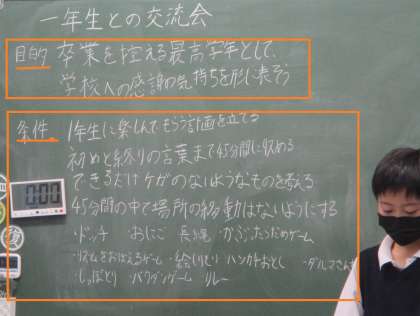 一年生との交流会
目的 卒業を控える最高学年として、
学校への感謝の気持ちを形に表そう
条件 1年生に楽しんでもらう計画を立てる
初めと終りの言葉まで45分間に収める
できるだけケガのないようなものを考える
45分間の中で場所の移動はないようにする
・ドッチ おにご 長縄 ・かぶったらだめゲーム
・リズムをおぼえるゲーム ・絵しりとり ・ハンカチおとし ・ダルマさんが
・しっぽとり ・バクダンゲーム リレー
0:00